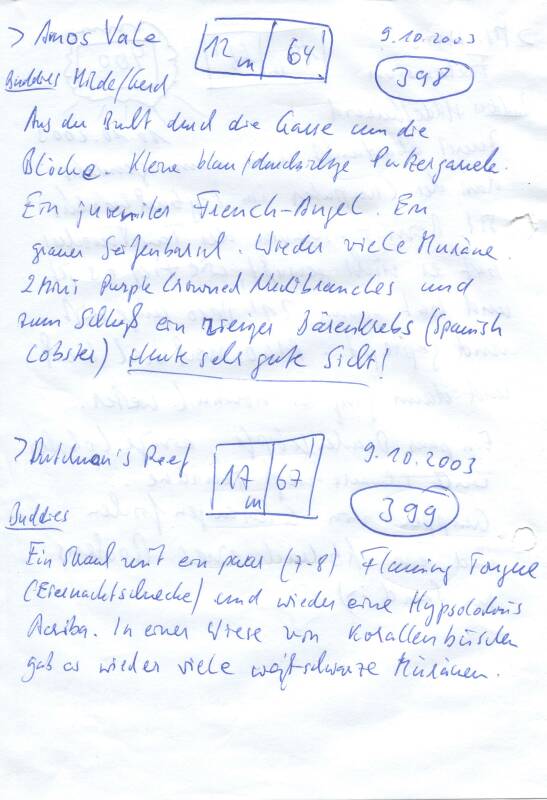 > Arnos Vale 12 m 64' 9.10.2003
398
Buddies Hilde/Gerd
Aus der Bucht durch die Gasse um die
Blöcke. Kleine blau/durchsichtige Putzergarnele.
Ein juveniler French-Angel. Ein
grauer Seifenbarsch. Wieder viele Muräne.
2 Mini Purple Crowned Nudibranches und
zum Schluß ein riesiger Bärenkrebs (Spanish
Lobster) Heute sehr gute Sicht!
> Dutchman's Reef 17 m 67' 9.10.2003
399
Buddies
Ein Strauch mit ein paar (7-8) Flaming Tongue
(Eiernacktschnecke) und wieder eine Hypselodoris
Acriba. In einer Wiese von Korallenbüschen
gab es wieder viele weißschwarze Muränen.